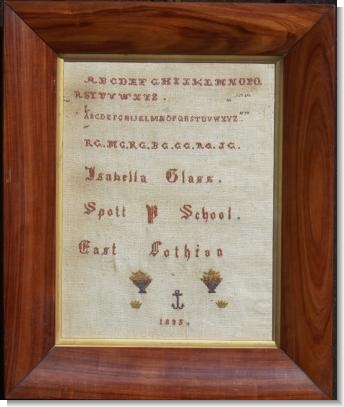 A B C D E F G H I J K L M N O P Q
R S T U V W X Y Z .
A B C D E F G H I J K L M N O P Q R S T U V W X Y Z
R.G. M.G. R.G. B.G. G.G. R.G. J.G.
Isabella Glass.
Spott P School.
East Lothian
1895.